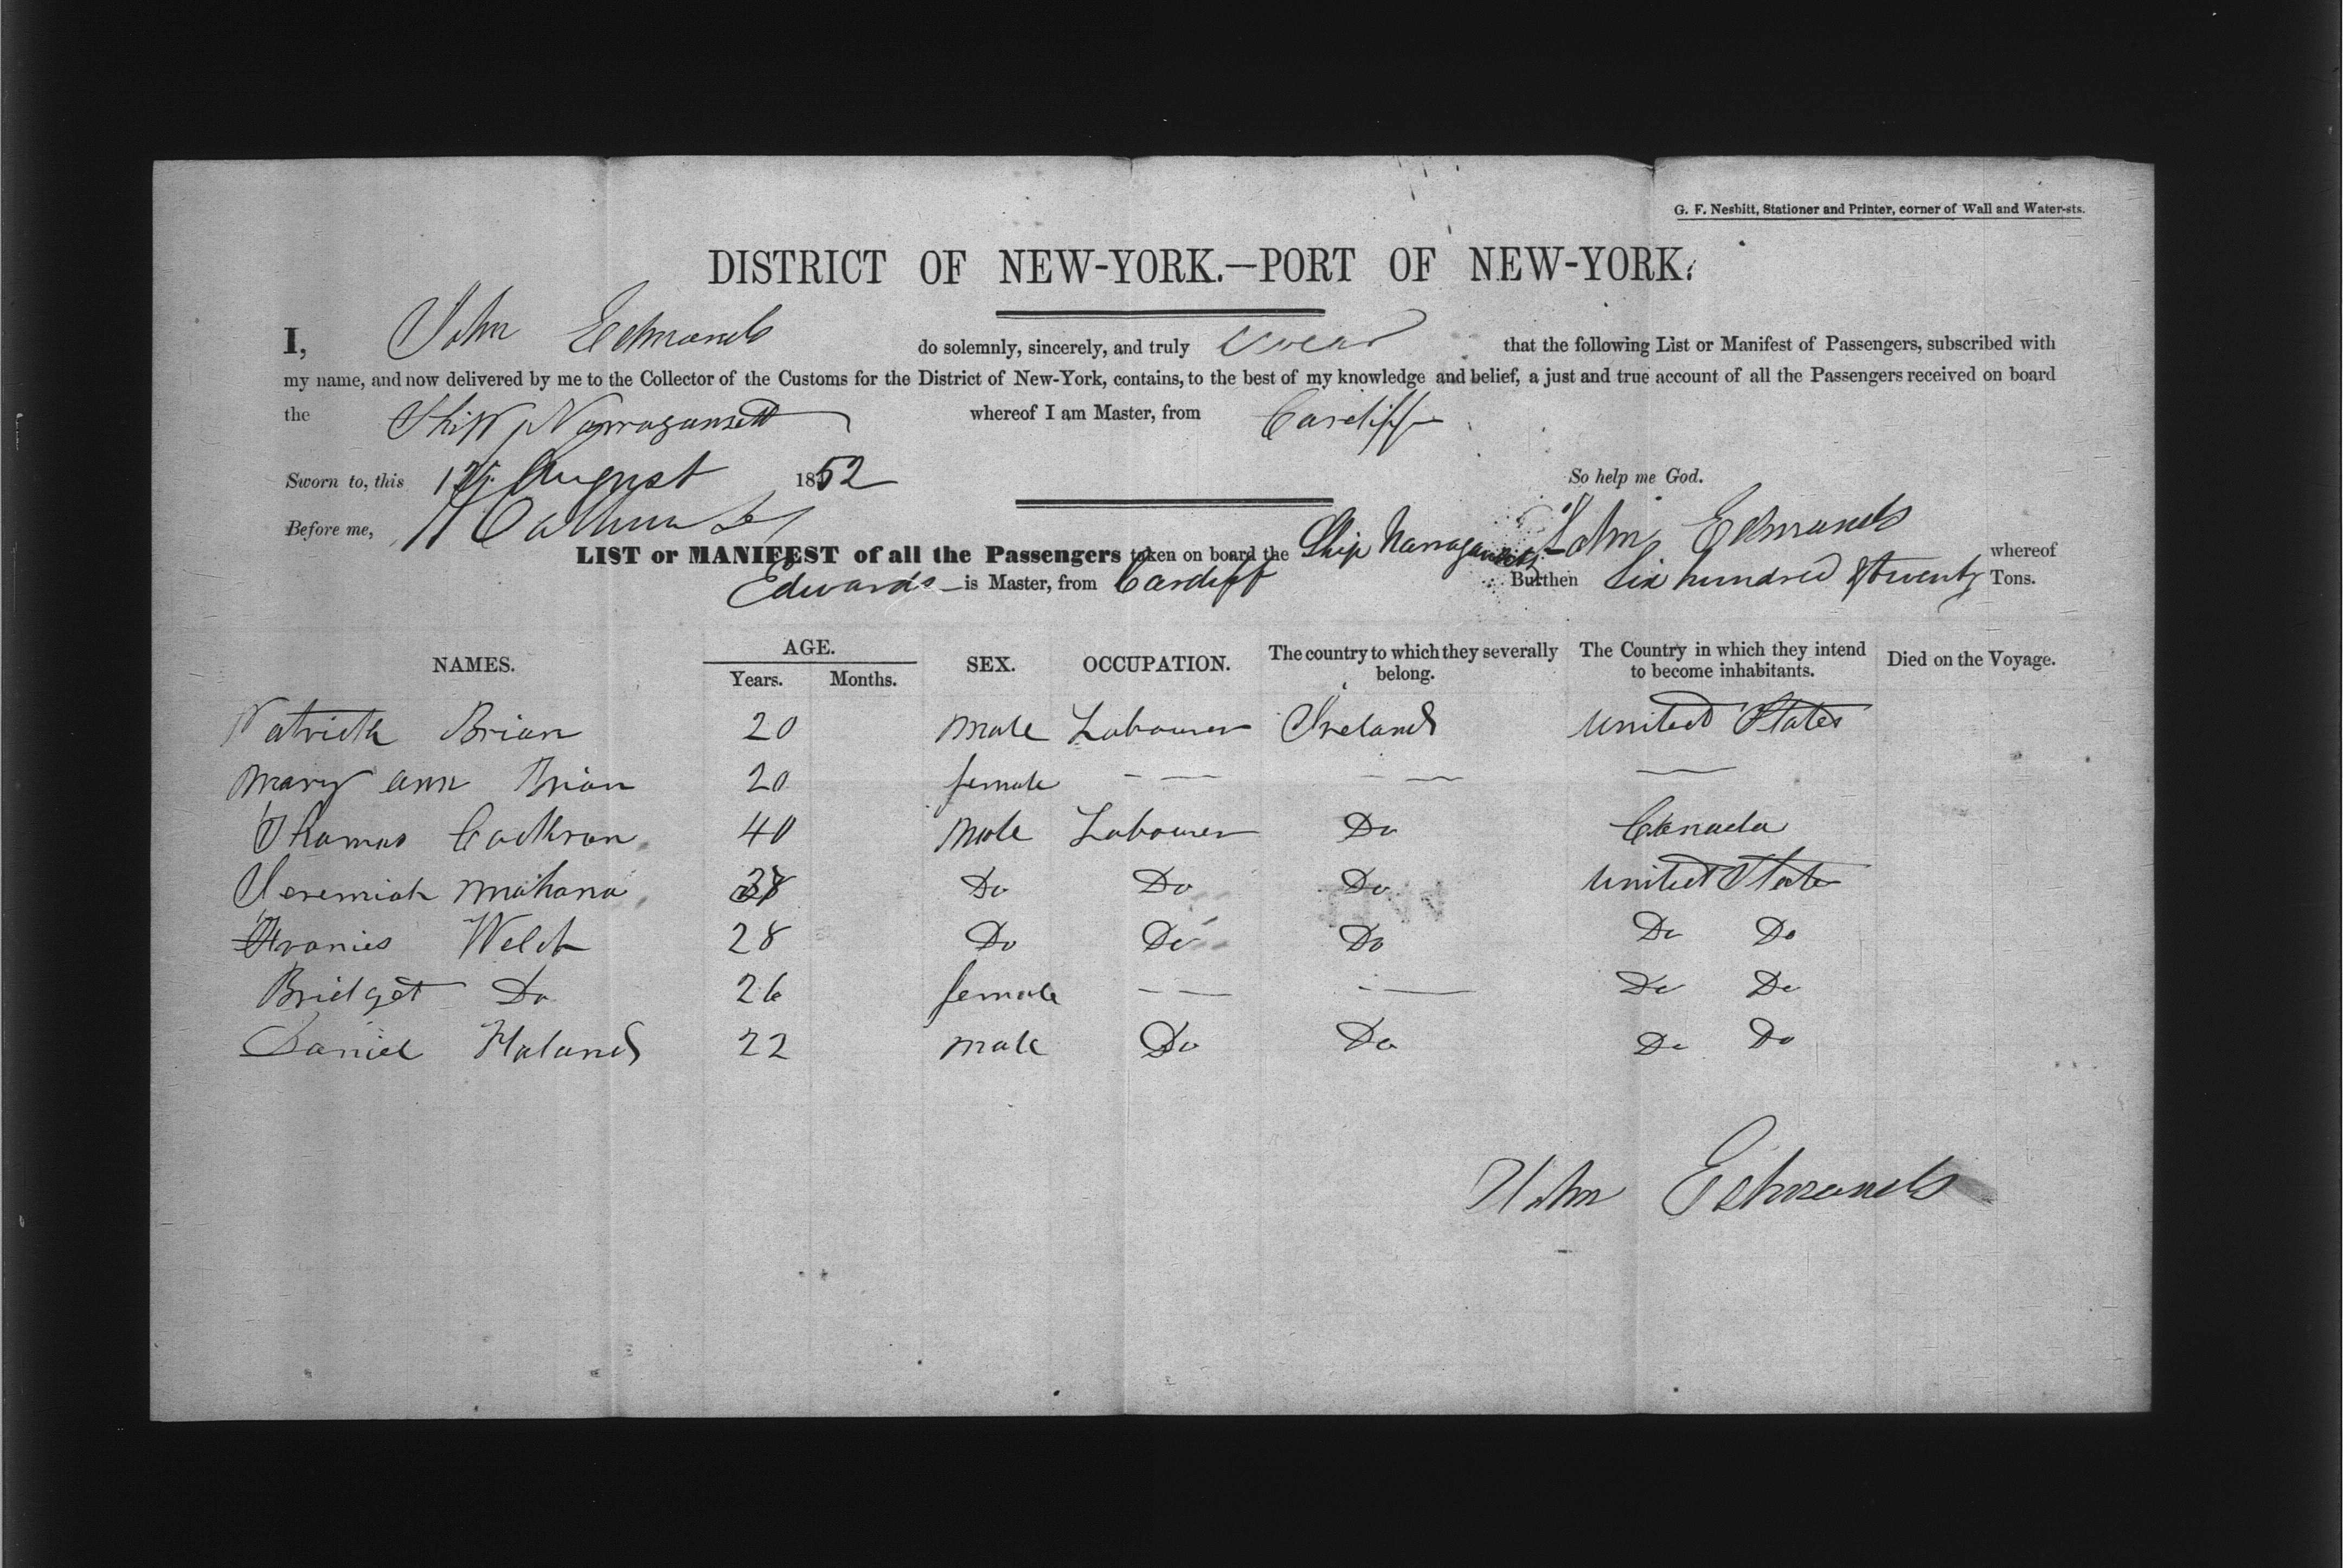 G. F. Nesbitt, Stationer and Printer, corner of Wall and Water-sts.
DISTRICT OF NEW-YORK.—PORT OF NEW-YORK.
I, John Edmands do solemnly, sincerely, and truly swear that the following List or Manifest of Passengers, subscribed with
my name, and now delivered by me to the Collector of the Customs for the District of New-York, contains, to the best of my knowledge and belief, a just and true account of all the Passengers received on board
the Ship Narragansett whereof I am Master, from Cardiff
Sworn to, this August 1852 So help me God.
Before me, John Edmands
LIST or MANIFEST of all the Passengers taken on board the Ship Narragansett whereof
Edwards is Master, from Cardiff Burthen Six hundred & twenty Tons.
NAMES. AGE. SEX. OCCUPATION. The country to which they severally belong. The Country in which they intend to become inhabitants. Died on the Voyage.
Years. Months.
Patrick Brian 20 Male Labourer Ireland United States
Mary Ann Brian 20 female — — — — —
Thomas Cothran 40 Male Labourer Do Canada
Jeremiah Mahana Do Do Do United States
Welch 28 Do Do Do Do Do
Bridget Do 26 female — — — — Do Do
Daniel Holand 22 Male Do Do Do Do
John Edmands